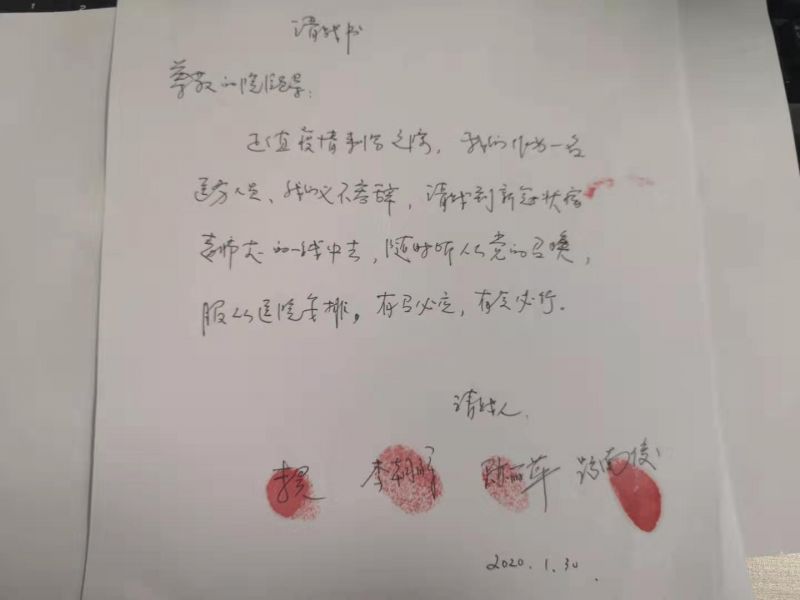 请战书
尊敬的院领导：
正值疫情来临之际，我们作为一名
医务人员、我们义不容辞，请战到新冠状病
毒肺炎的一线中去，随时听从党的召唤，
服从医院安排，有召必应，有令必行.
请战人.
李朝晖
2020.1.30.